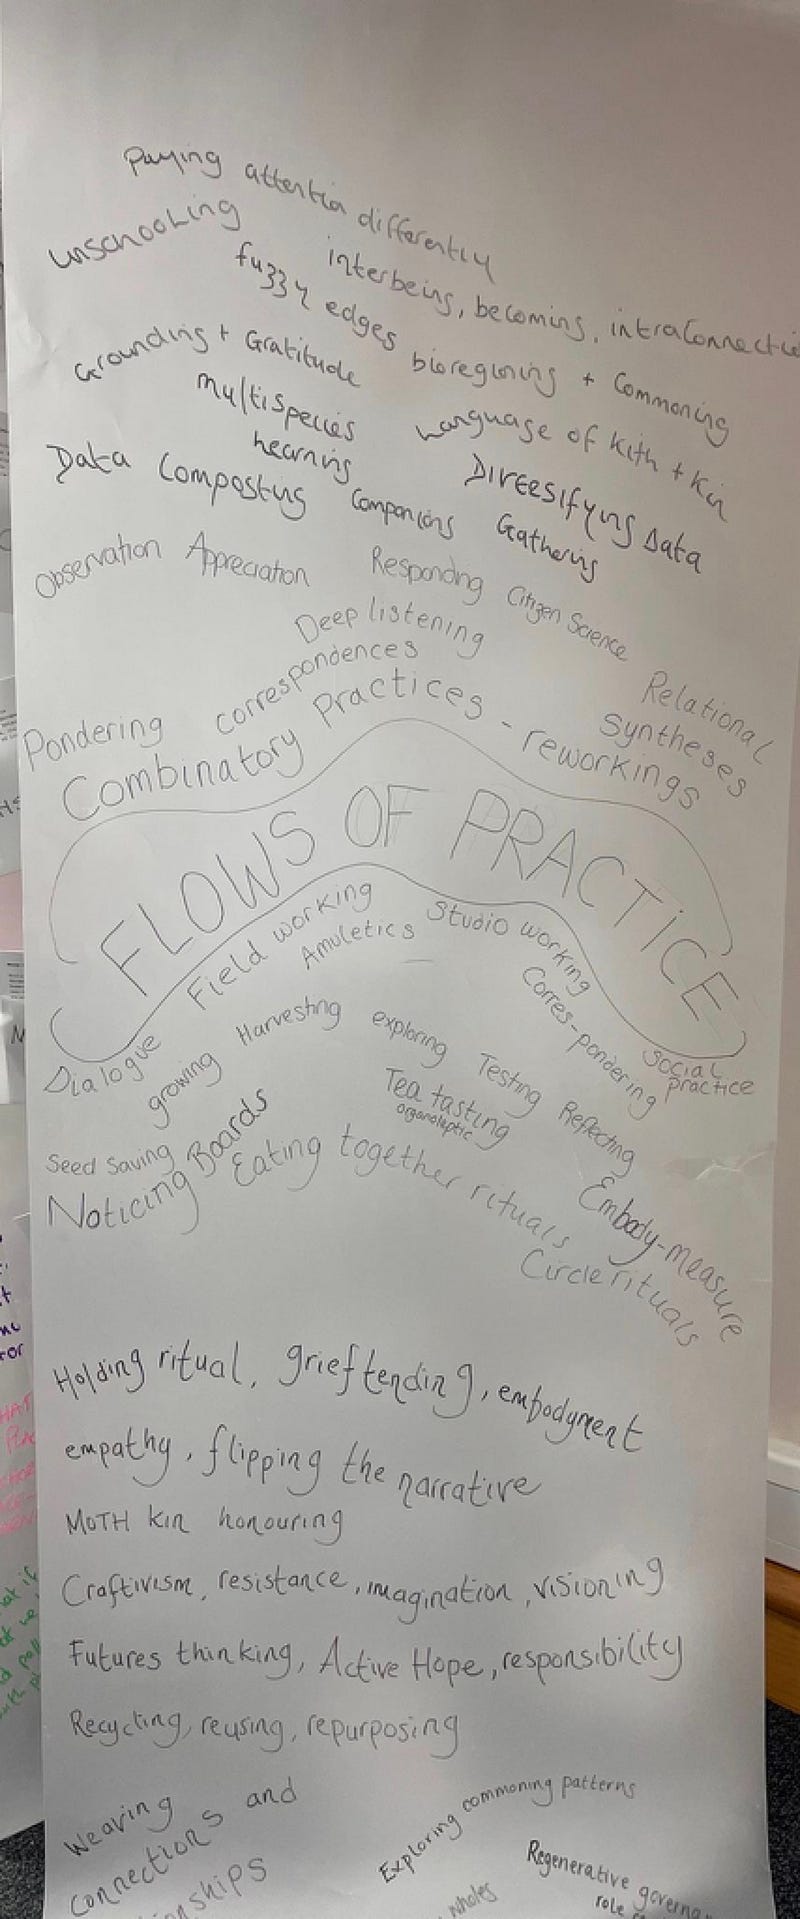 Paying attention differently
unschooling
interbeing, becoming, intraconnectio
fuzzy edges
bioregioning + Commoning
Grounding + Gratitude
Language of Kith + Kin
multispecies
hearning
Diversifying Data
Gathering
Data Composting Companions
Observation Appreciation Responding Citizen Science
Deep listening
Relational
Syntheses
Pondering correspondences
Combinatory Practices - reworkings
FLOWS OF PRACTICE
Field working Studio working
Amuletics
Corres-pondering
Social
practice
Dialogue
growing Harvesting exploring Testing Reflecting
Tea tasting
organoleptic
Seed Saving
Noticing Boards
Eating together rituals
Embody-measure
Circle rituals
Holding ritual, grieftending, embodyment
empathy, flipping the narrative
MOTH kin honouring
Craftivism, resistance, imagination, visioning
Futures thinking, Active Hope, responsibility
Recycling, reusing, repurposing
Weaving
connections and
onships
Exploring commoning patterns
wholes
Regenerative governa
role